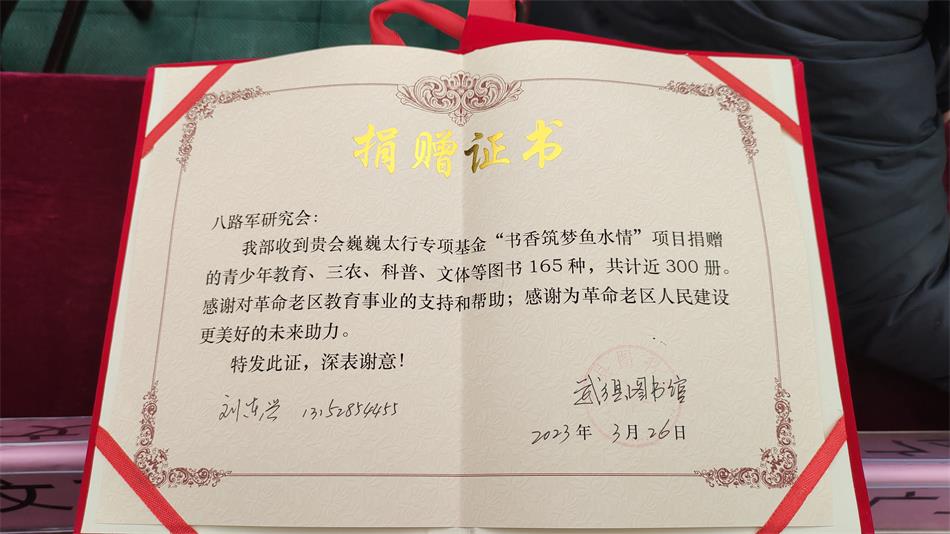 捐赠证书
八路军研究会：
我部收到贵会巍巍太行专项基金“书香筑梦鱼水情”项目捐赠
的青少年教育、三农、科普、文体等图书165种，共计近300册。
感谢对革命老区教育事业的支持和帮助；感谢为革命老区人民建设
更美好的未来助力。
特发此证，深表谢意！
刘东兴 13152854455
武乡县图书馆
2023年 3月26日